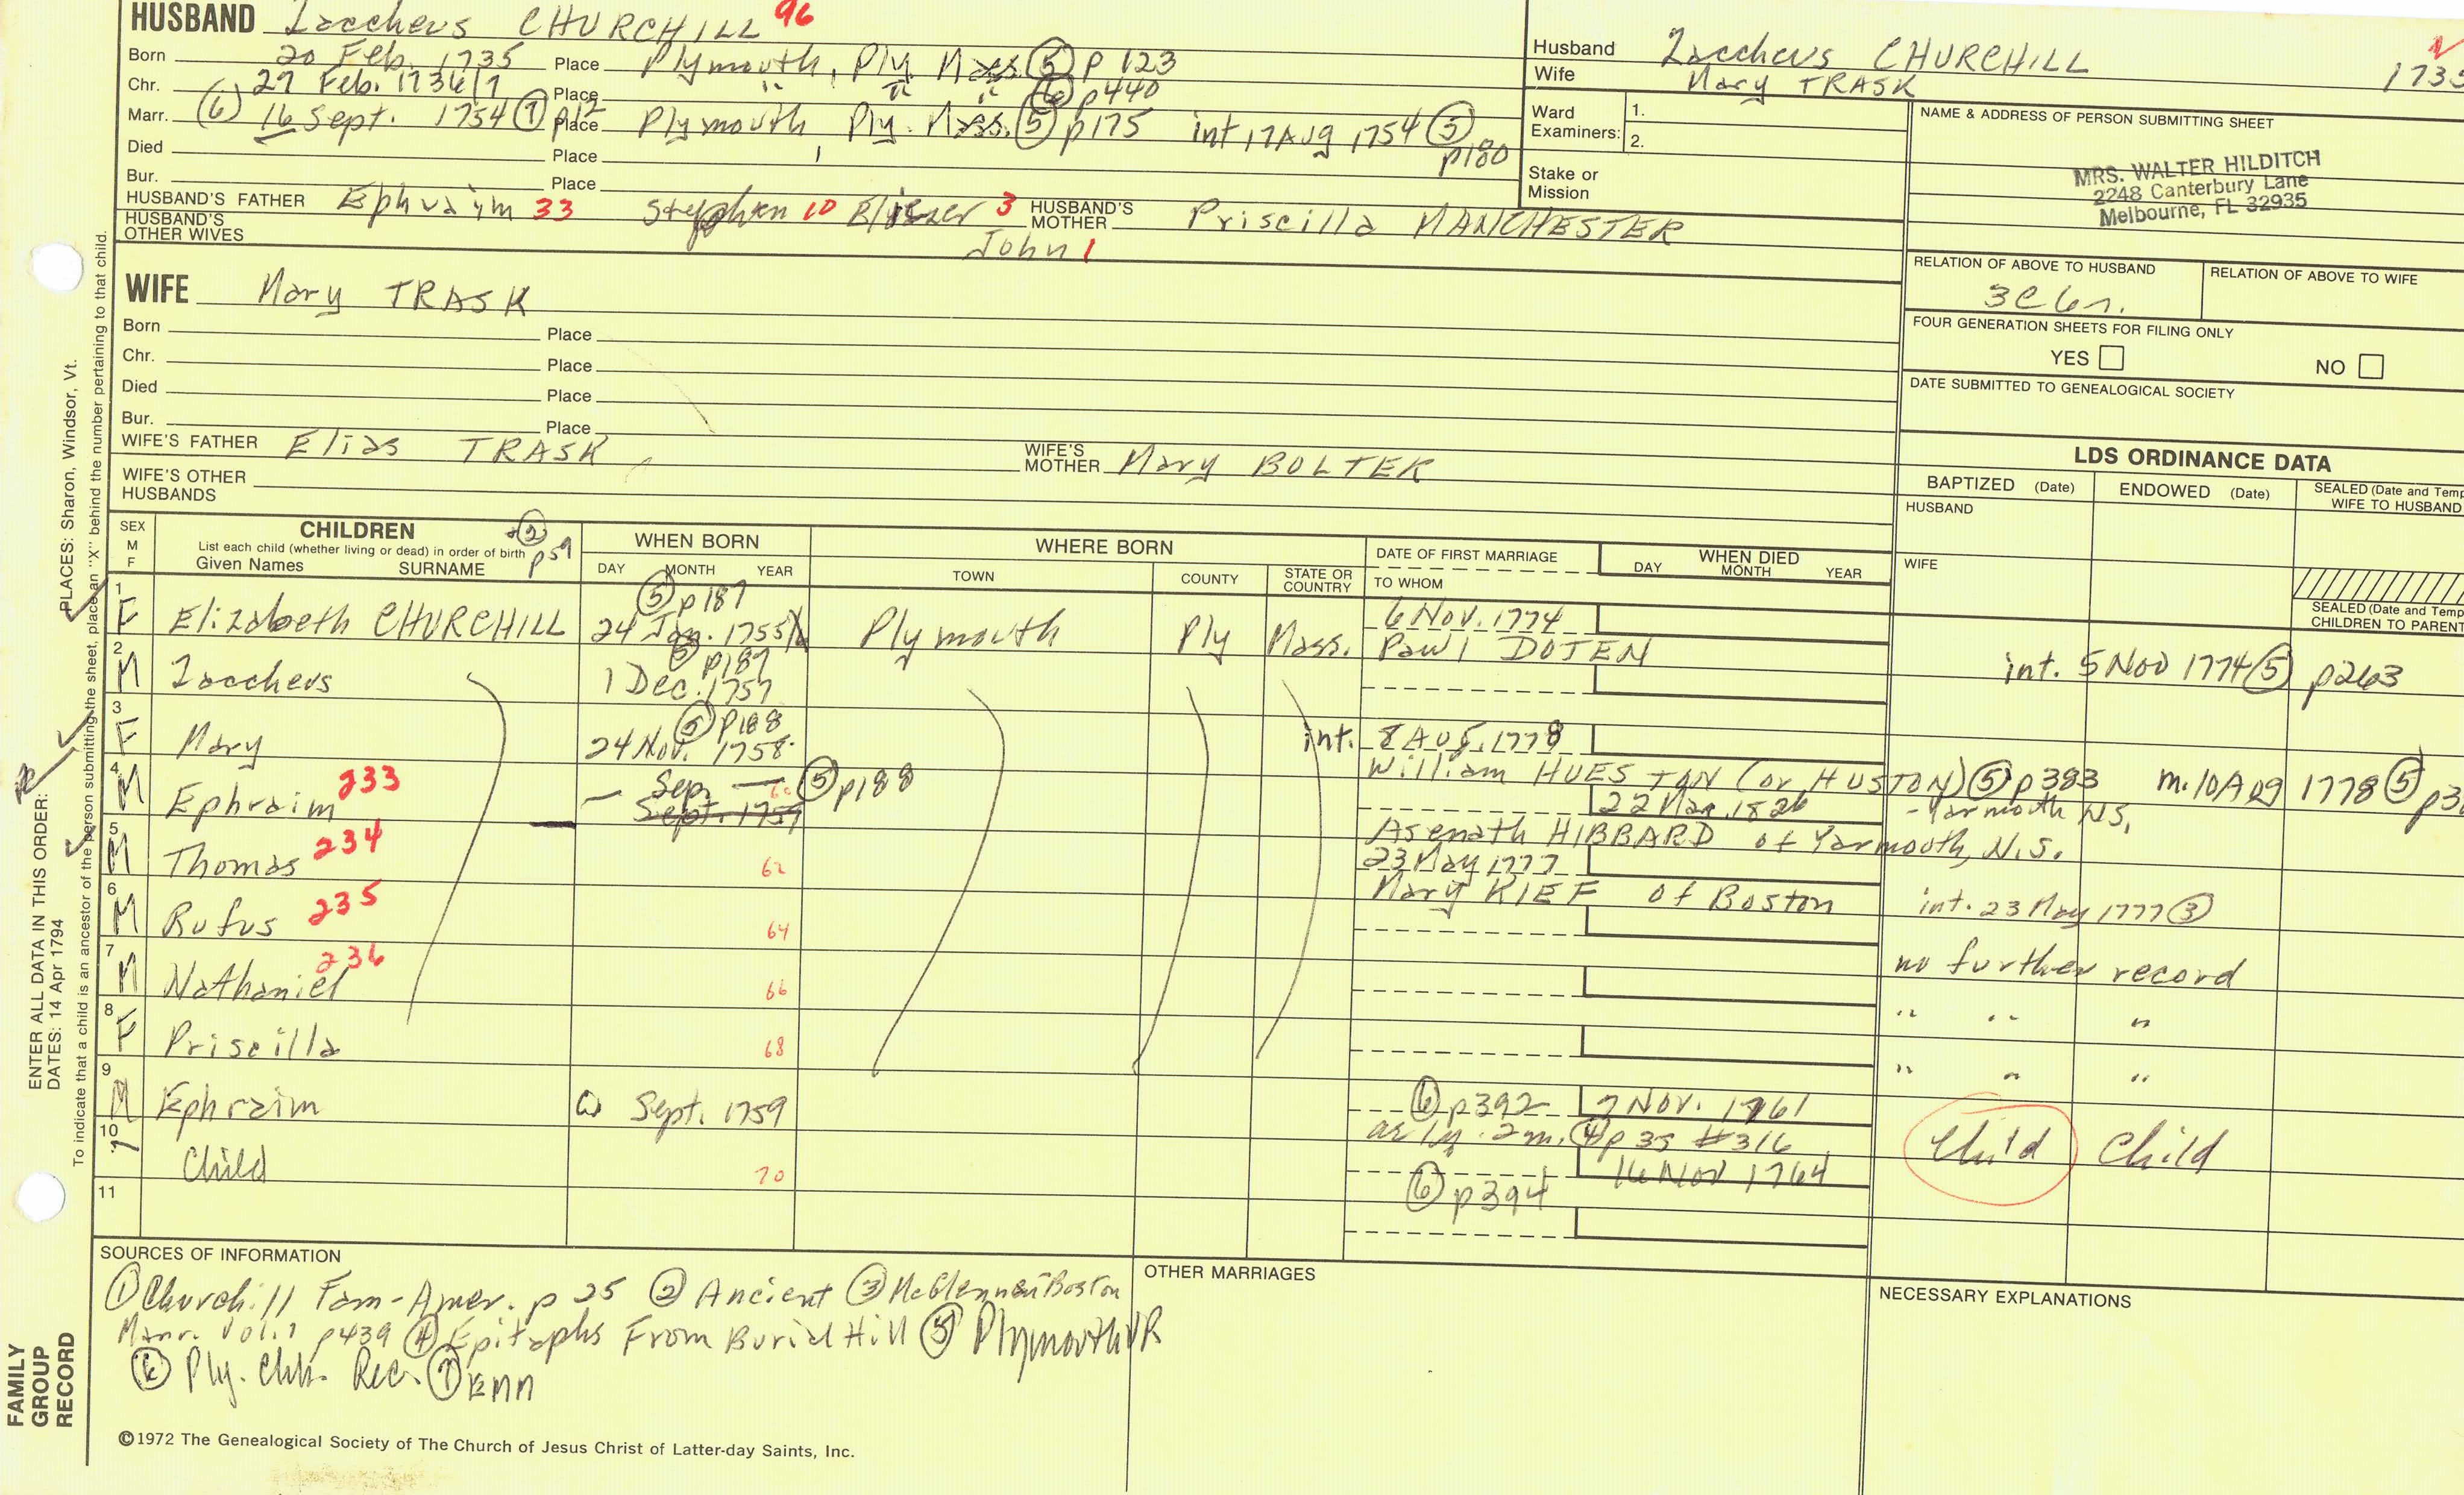 HUSBAND Zaccheus CHURCHILL 96
Born 20 Feb. 1735 Place Plymouth, Ply. Mass. (5) p 123
Chr. 27 Feb. 1734/7 Place " " " (6) p440
Marr. (6) 16 Sept. 1754 (7) p12 Place Plymouth Ply. Mass. (5) p175 int 17 Aug 1754 (5) p180
Died Place
Bur. Place
HUSBAND'S FATHER Ephraim 33 Stephen 10 Eliezer 3 John 1 HUSBAND'S MOTHER Priscilla MANCHESTER
HUSBAND'S OTHER WIVES
Husband Zaccheus CHURCHILL
Wife Mary TRASK
Ward Examiners: 1.
2.
Stake or Mission
NAME & ADDRESS OF PERSON SUBMITTING SHEET
MRS. WALTER HILDITCH
2248 Canterbury Lane
Melbourne, FL 32935
RELATION OF ABOVE TO HUSBAND RELATION OF ABOVE TO WIFE
3C 6r.
FOUR GENERATION SHEETS FOR FILING ONLY
YES NO
DATE SUBMITTED TO GENEALOGICAL SOCIETY
WIFE Mary TRASK
Born Place
Chr. Place
Died Place
Bur. Place
WIFE'S FATHER Elias TRASK WIFE'S MOTHER Mary BOLTER
WIFE'S OTHER HUSBANDS
LDS ORDINANCE DATA
BAPTIZED (Date) ENDOWED (Date) SEALED (Date and Temp
WIFE TO HUSBAND
HUSBAND
WIFE
SEALED (Date and Temp
CHILDREN TO PARENT
SEX M F
CHILDREN (2) p59
List each child (whether living or dead) in order of birth
Given Names SURNAME
WHEN BORN
DAY MONTH YEAR
WHERE BORN
TOWN COUNTY STATE OR COUNTRY
DATE OF FIRST MARRIAGE
TO WHOM
WHEN DIED
DAY MONTH YEAR
1 F Elizabeth CHURCHILL (5) p187 24 Jan. 1755 Plymouth Ply Mass. 6 Nov. 1774
Paul DOTEN int. 5 Nov 1774 (5) p263
2 M Zaccheus (5) p187 1 Dec. 1757
3 F Mary (5) p188 24 Nov. 1758 int. 8 Aug. 1778
William HUESTAN (or HUSTON) (5) p383 m. 10 Aug 1778 (5)
4 M Ephraim 233 Sep. 60 (5) p188 Sept. 1759 22 Mar. 1826 - Yarmouth N.S.
Asenath HIBBARD of Yarmouth, N.S.
5 M Thomas 234 62 23 May 1777
Mary KIEF of Boston int. 23 May 1777 (3)
6 M Rufus 235 64
7 M Nathaniel 236 66 no further record
8 F Priscilla 68 " " "
" " "
9 M Ephraim Sept. 1759 (6) p392 7 Nov. 1761
as 1y. 2m. (4) p 35 #316 Child Child
10 Child 70 16 Nov 1764
(6) p394
11
SOURCES OF INFORMATION
(1) Churchill Fam-Amer. p 25 (2) Ancient (3) McGlennen Boston
Marr. Vol. 1 p439 (4) Epitaphs From Burial Hill (5) Plymouth VR
(6) Ply. Chh. Rec. (7)
OTHER MARRIAGES
NECESSARY EXPLANATIONS
©1972 The Genealogical Society of The Church of Jesus Christ of Latter-day Saints, Inc.
FAMILY GROUP RECORD
ENTER ALL DATA IN THIS ORDER:
DATES: 14 Apr 1794 PLACES: Sharon, Windsor, Vt.
To indicate that a child is an ancestor of the person submitting the sheet, place an "X" behind the number pertaining to that child.